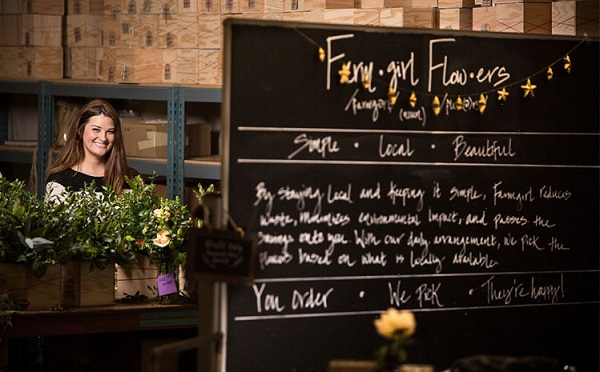 Farm·girl Flow·ers
/farmgərl/ (noun)
Simple · Local · Beautiful
By staying local and keeping it simple, Farmgirl reduces
waste, minimizes environmental impact, and passes the
savings onto you. With our daily arrangement, we pick the
flowers based on what is locally available.
You Order · We Pick · They're happy!